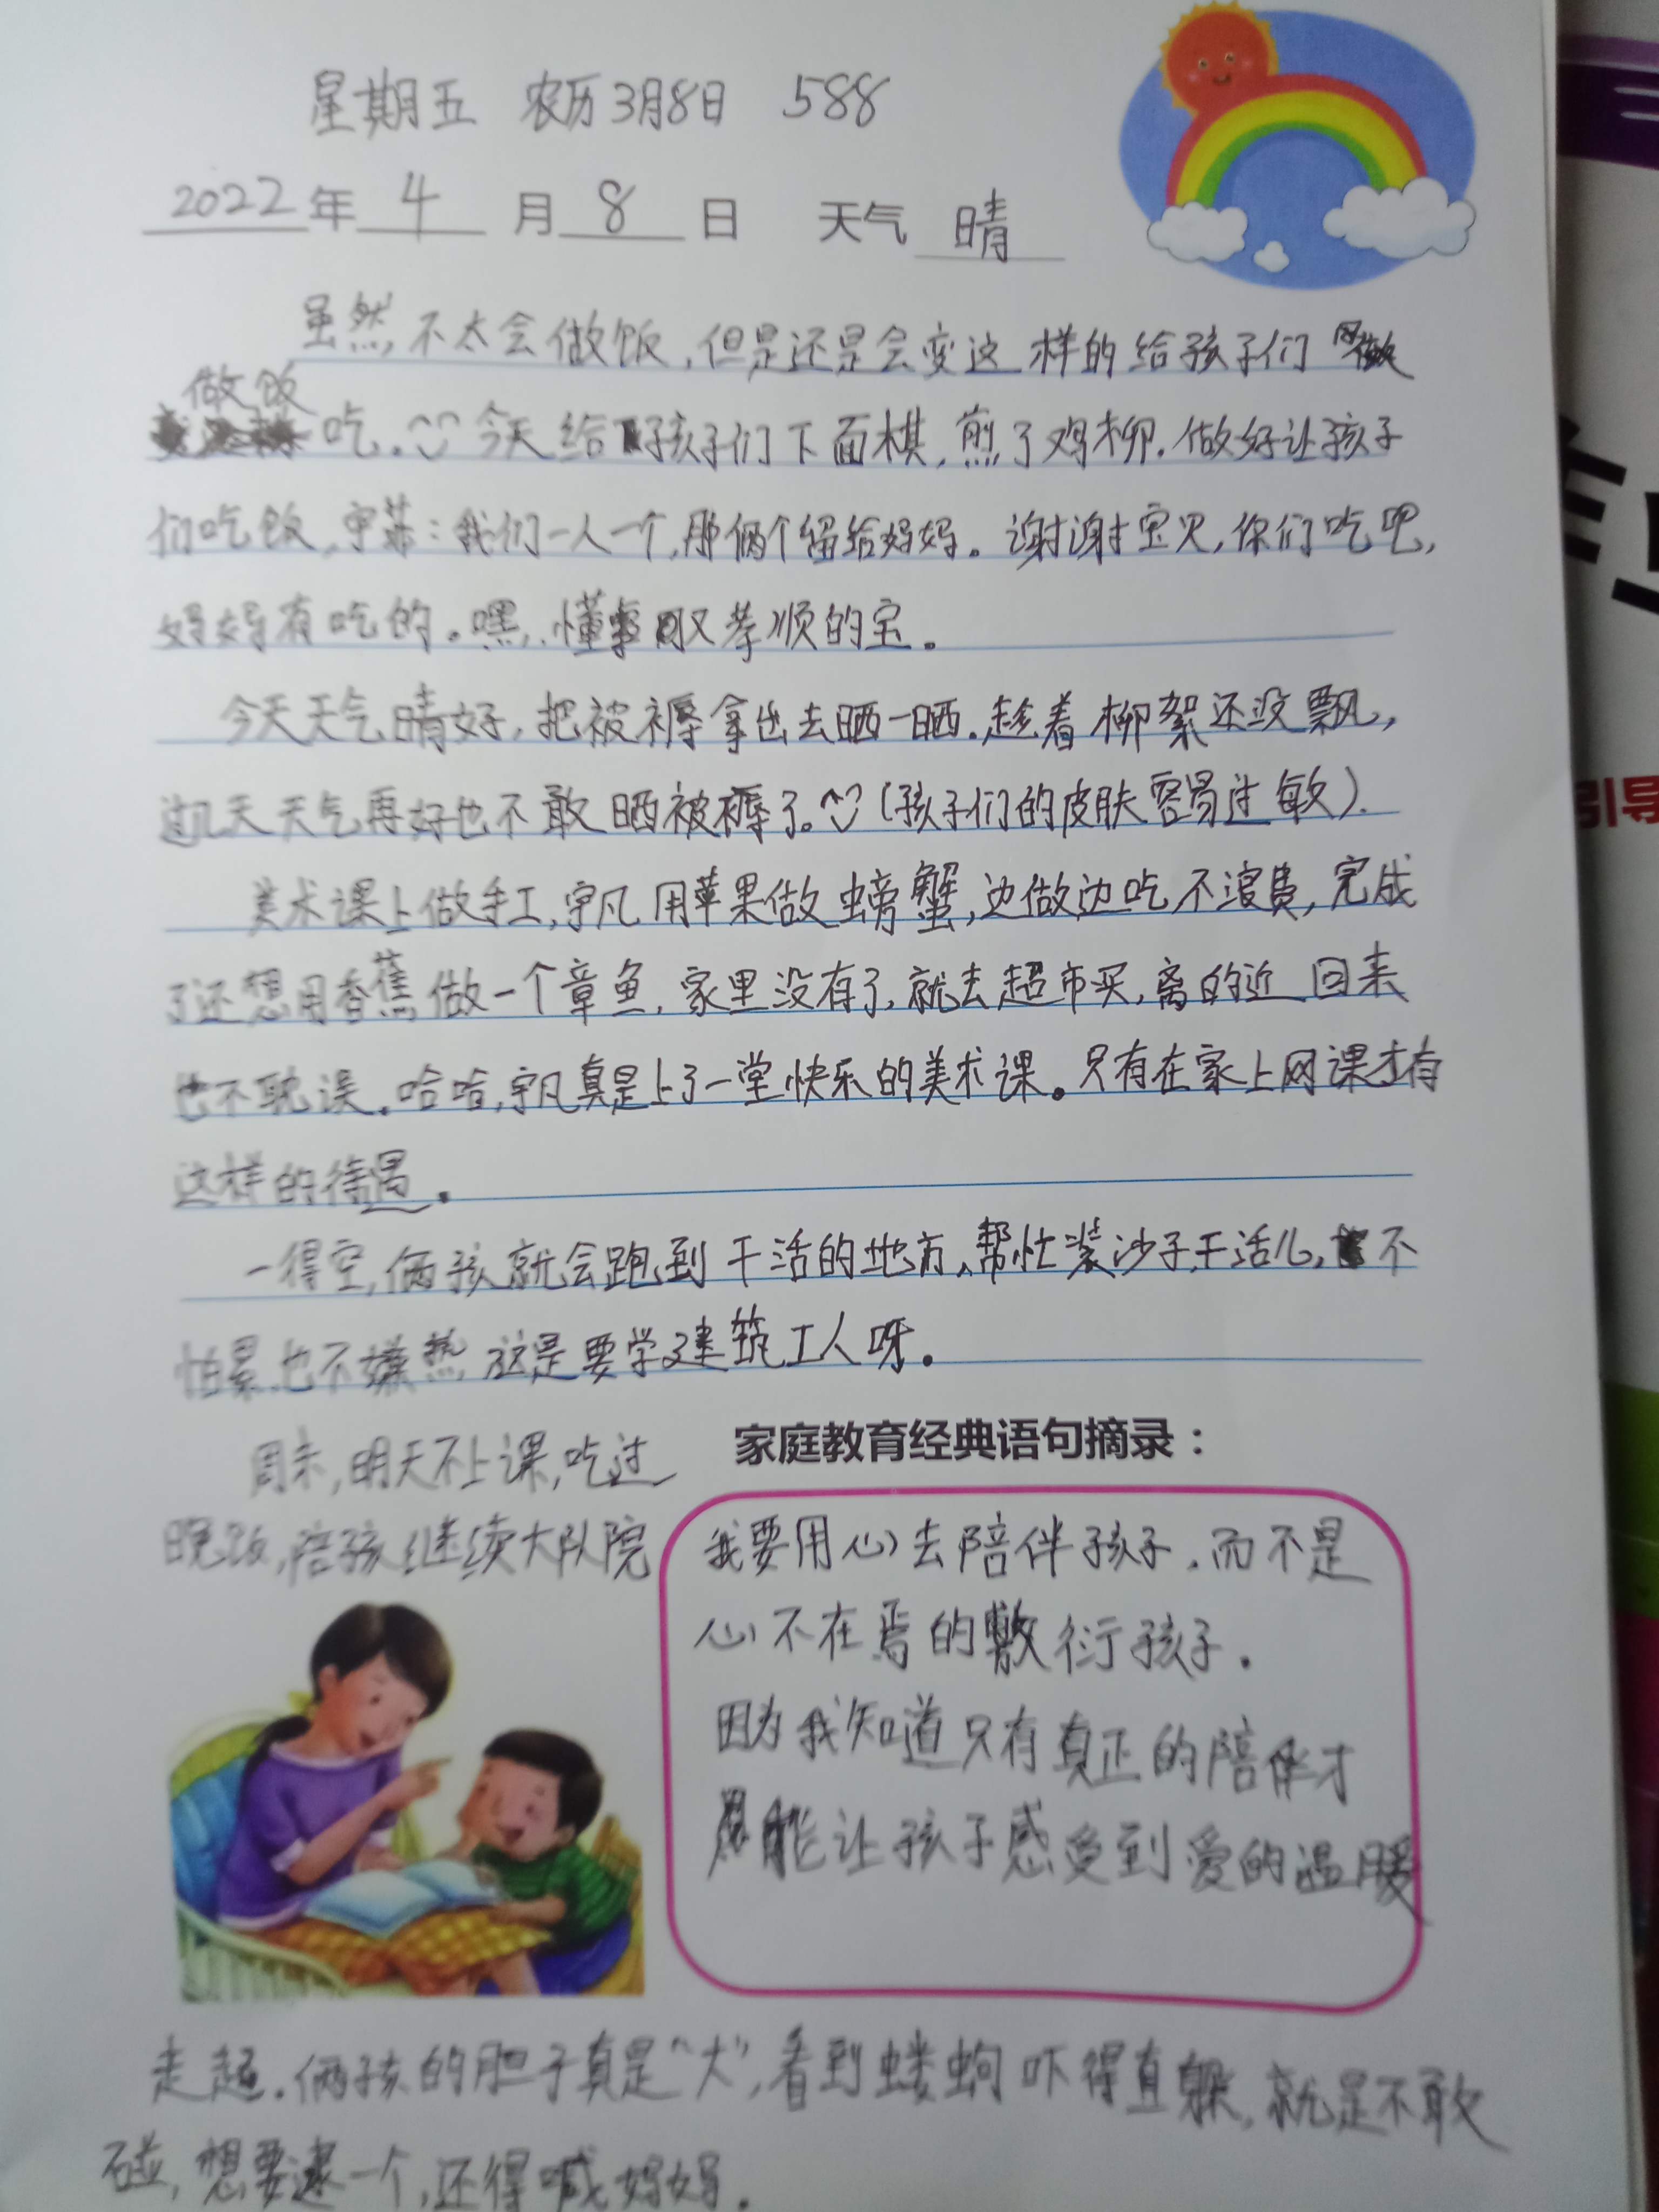 星期五 农历3月8日 588
2022年 4 月 8 日 天气 晴
虽然不太会做饭,但是还是会变这样的给孩子们
做饭
吃。今天给孩子们下面棋,煎了鸡柳.做好让孩子
们吃饭,宇菲:我们一人一个,那俩个留给妈妈。谢谢宝贝,你们吃吧,
妈妈有吃的。嘿,懂事又孝顺的宝。
今天天气晴好,把被褥拿出去晒一晒.趁着柳絮还没飘,
过几天天气再好也不敢晒被褥了。(孩子们的皮肤容易过敏).
美术课上做手工,宇凡用苹果做螃蟹,边做边吃不浪费,完成
了还想用香蕉做一个章鱼,家里没有了,就去超市买,离的近回来
也不耽误。哈哈,宇凡真是上了一堂快乐的美术课。只有在家上网课才有
这样的待遇。
一得空,俩孩就会跑到干活的地方、帮忙装沙子,干活儿,不
怕累也不嫌热这是要学建筑工人呀。
周末,明天不上课,吃过
晚饭,陪孩继续大队院
家庭教育经典语句摘录:
我要用心去陪伴孩子.而不是
心不在焉的敷衍孩子.
因为我知道只有真正的陪伴才
能让孩子感受到爱的温暖
走起.俩孩的胆子真是"大",看到蝼蛄吓得直躲,就是不敢
碰,想要逮一个,还得喊妈妈.